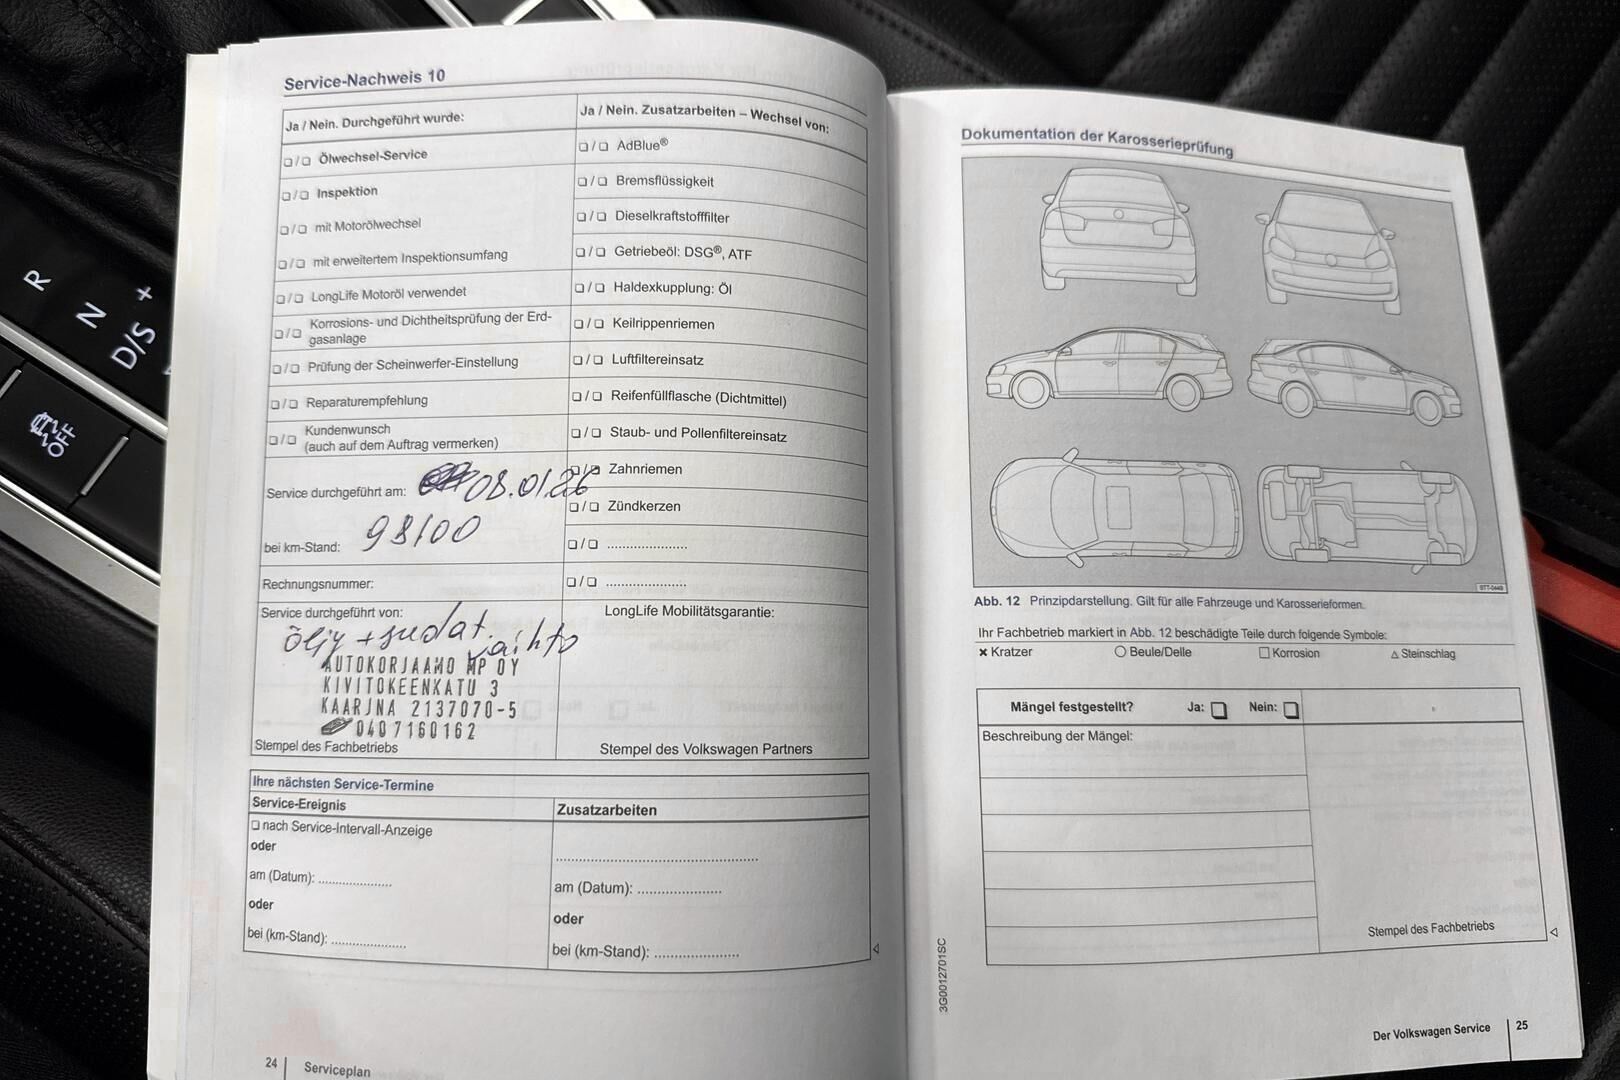 Service-Nachweis 10
Ja / Nein. Durchgeführt wurde:
Ja / Nein. Zusatzarbeiten – Wechsel von:
❑ / ❑ Ölwechsel-Service
❑ / ❑ AdBlue®
❑ / ❑ Inspektion
❑ / ❑ Bremsflüssigkeit
❑ / ❑ mit Motorölwechsel
❑ / ❑ Dieselkraftstofffilter
❑ / ❑ mit erweitertem Inspektionsumfang
❑ / ❑ Getriebeöl: DSG®, ATF
❑ / ❑ LongLife Motoröl verwendet
❑ / ❑ Haldexkupplung: Öl
❑ / ❑ Korrosions- und Dichtheitsprüfung der Erd-
gasanlage
❑ / ❑ Keilrippenriemen
❑ / ❑ Prüfung der Scheinwerfer-Einstellung
❑ / ❑ Luftfiltereinsatz
❑ / ❑ Reparaturempfehlung
❑ / ❑ Reifenfüllflasche (Dichtmittel)
❑ / ❑ Kundenwunsch
(auch auf dem Auftrag vermerken)
❑ / ❑ Staub- und Pollenfiltereinsatz
❑ / ❑ Zahnriemen
Service durchgeführt am: 08.01.26
❑ / ❑ Zündkerzen
bei km-Stand: 98100
❑ / ❑ ......................
Rechnungsnummer:
❑ / ❑ ......................
Service durchgeführt von:
LongLife Mobilitätsgarantie:
öljy + suodat. vaihto
AUTOKORJAAMO MP OY
KIVITOKEENKATU 3
KAARINA 2137070-5
0407160162
Stempel des Fachbetriebs
Stempel des Volkswagen Partners
Ihre nächsten Service-Termine
Service-Ereignis
Zusatzarbeiten
❑ nach Service-Intervall-Anzeige
oder
......................
am (Datum): ......................
am (Datum): ......................
oder
oder
bei (km-Stand): ......................
bei (km-Stand): ......................
24 | Serviceplan
Dokumentation der Karosserieprüfung
Abb. 12 Prinzipdarstellung. Gilt für alle Fahrzeuge und Karosserieformen.
Ihr Fachbetrieb markiert in Abb. 12 beschädigte Teile durch folgende Symbole:
× Kratzer
○ Beule/Delle
□ Korrosion
△ Steinschlag
Mängel festgestellt? Ja: ❑ Nein: ❑
Beschreibung der Mängel:
Stempel des Fachbetriebs
3G0012701SC
Der Volkswagen Service | 25
R
N
D/S
+
OFF